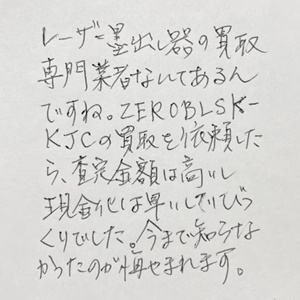 レーザー墨出し器の買取
専門業者なんてあるん
ですね。ZEROBLSK-
KJCの買取を依頼した
ら、査定金額は高いし
現金化は早いしでびっ
くりでした。今まで知らな
かったのが悔やまれます。